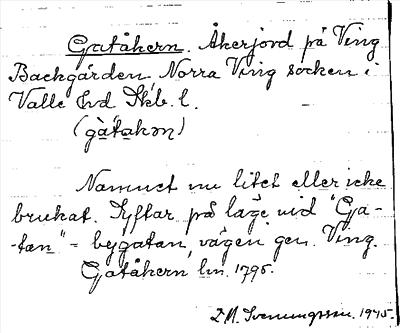 Gatåkern. Åkerjord på Ving
Backgården, Norra Ving socken i
Valle hd Skb. l.
(gàtakən)
Namnet nu litet eller icke
brukat. Syftar på läge vid "Ga-
-tan" - bygatan, vägen gen. Ving.
Gatåkern lm. 1795.
Svenungsson. 1945.